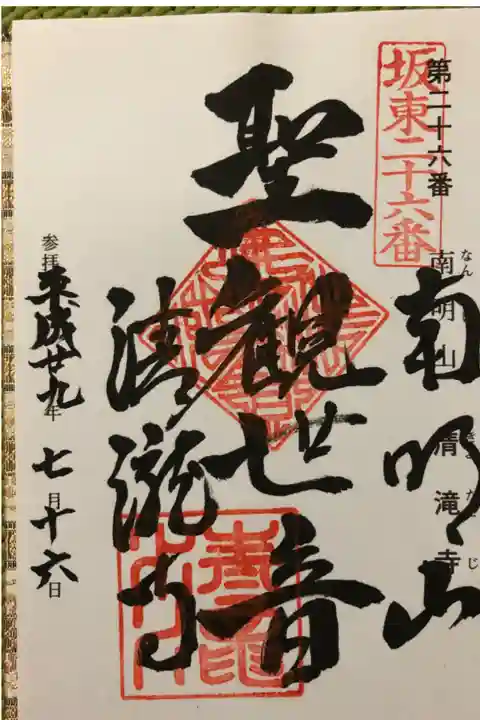 坂東二十六番
第二十六番
南明山 清滝寺
南明山
聖観世音
清瀧寺
参拝 平成廿九年 七月十六日